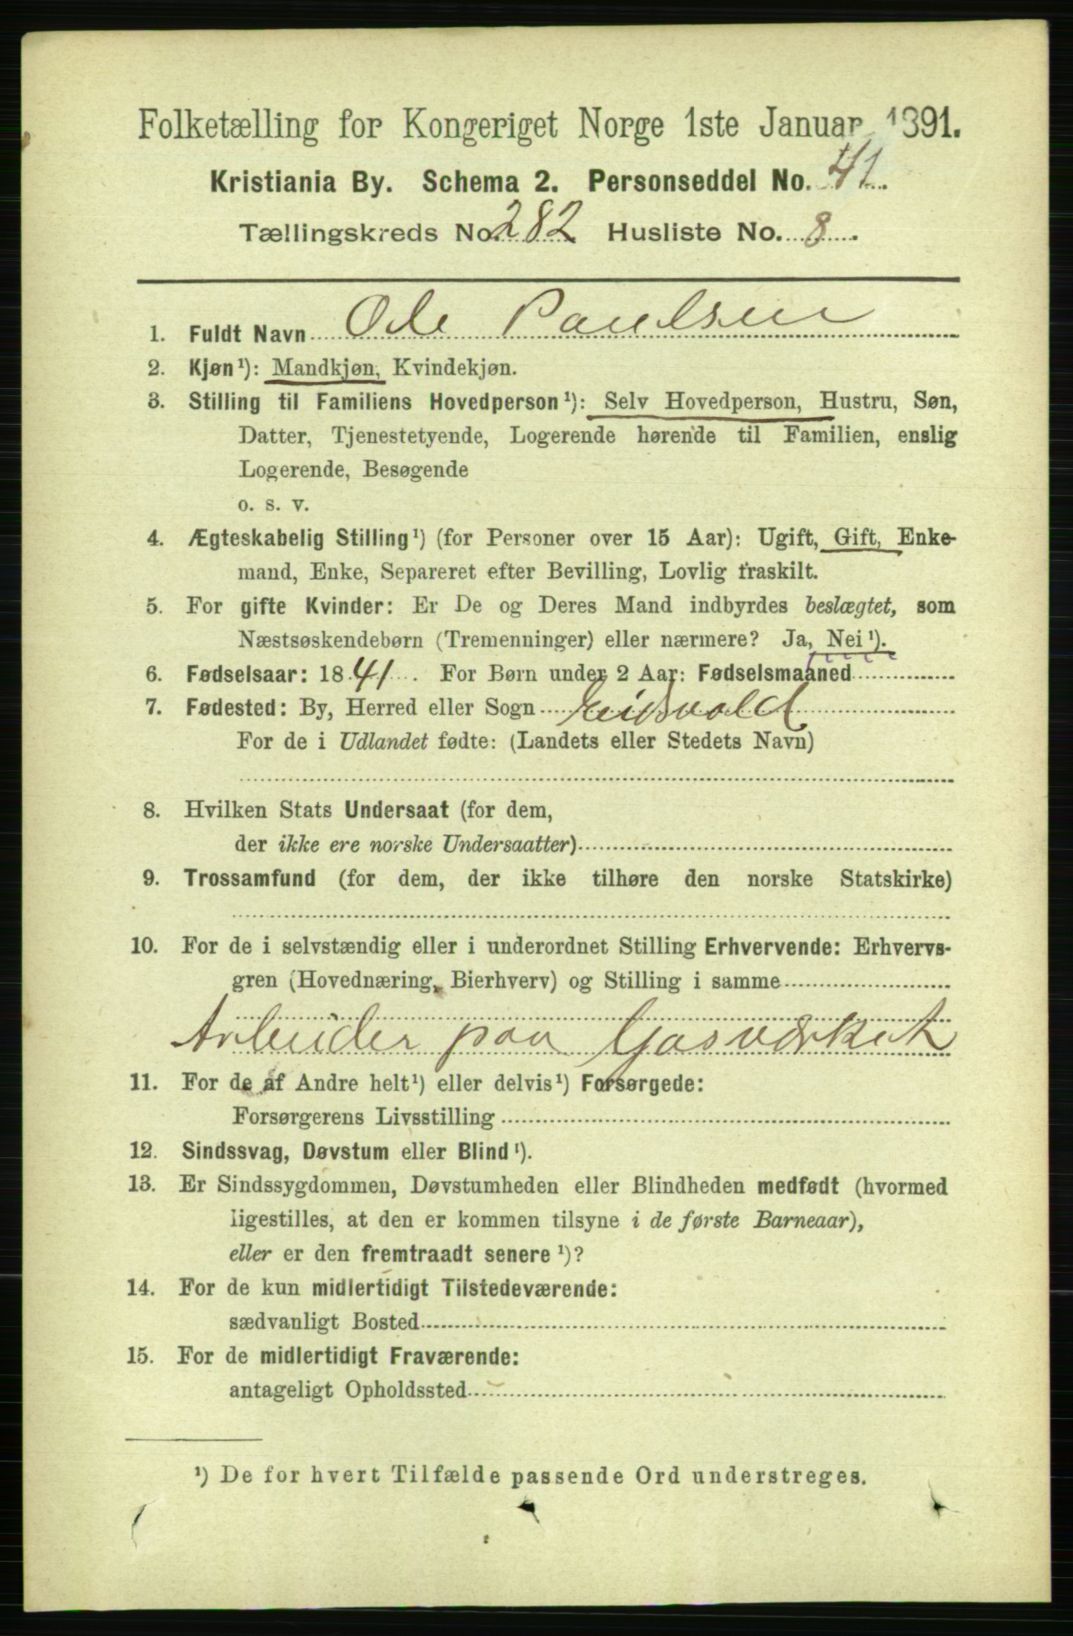 Folketælling for Kongeriget Norge 1ste Januar 1891.
Kristiania By. Schema 2. Personseddel No. 41.
Tællingskreds No. 282 Husliste No. 8.
1. Fuldt Navn Ole Paulsen
2. Kjøn¹): Mandkjøn, Kvindekjøn.
3. Stilling til Familiens Hovedperson¹): Selv Hovedperson, Hustru, Søn,
Datter, Tjenestetyende, Logerende hørende til Familien, enslig
Logerende, Besøgende
o. s. v.
4. Ægteskabelig Stilling¹) (for Personer over 15 Aar): Ugift, Gift, Enke-
mand, Enke, Separeret efter Bevilling, Lovlig fraskilt.
5. For gifte Kvinder: Er De og Deres Mand indbyrdes beslægtet, som
Næstsøskendebørn (Tremenninger) eller nærmere? Ja, Nei¹).
6. Fødselsaar: 1841. For Børn under 2 Aar: Fødselsmaaned
7. Fødested: By, Herred eller Sogn Eidsvold
For de i Udlandet fødte: (Landets eller Stedets Navn)
8. Hvilken Stats Undersaat (for dem,
der ikke ere norske Undersaatter)
9. Trossamfund (for dem, der ikke tilhøre den norske Statskirke)
10. For de i selvstændig eller i underordnet Stilling Erhvervende: Erhvervs-
gren (Hovednæring, Bierhverv) og Stilling i samme
Arbeider paa Gasværket
11. For de af Andre helt¹) eller delvis¹) Forsørgede:
Forsørgerens Livsstilling
12. Sindssvag, Døvstum eller Blind¹).
13. Er Sindssygdommen, Døvstumheden eller Blindheden medfødt (hvormed
ligestilles, at den er kommen tilsyne i de første Barneaar),
eller er den fremtraadt senere¹)?
14. For de kun midlertidigt Tilstedeværende:
sædvanligt Bosted
15. For de midlertidigt Fraværende:
antageligt Opholdssted
¹) De for hvert Tilfælde passende Ord understreges.